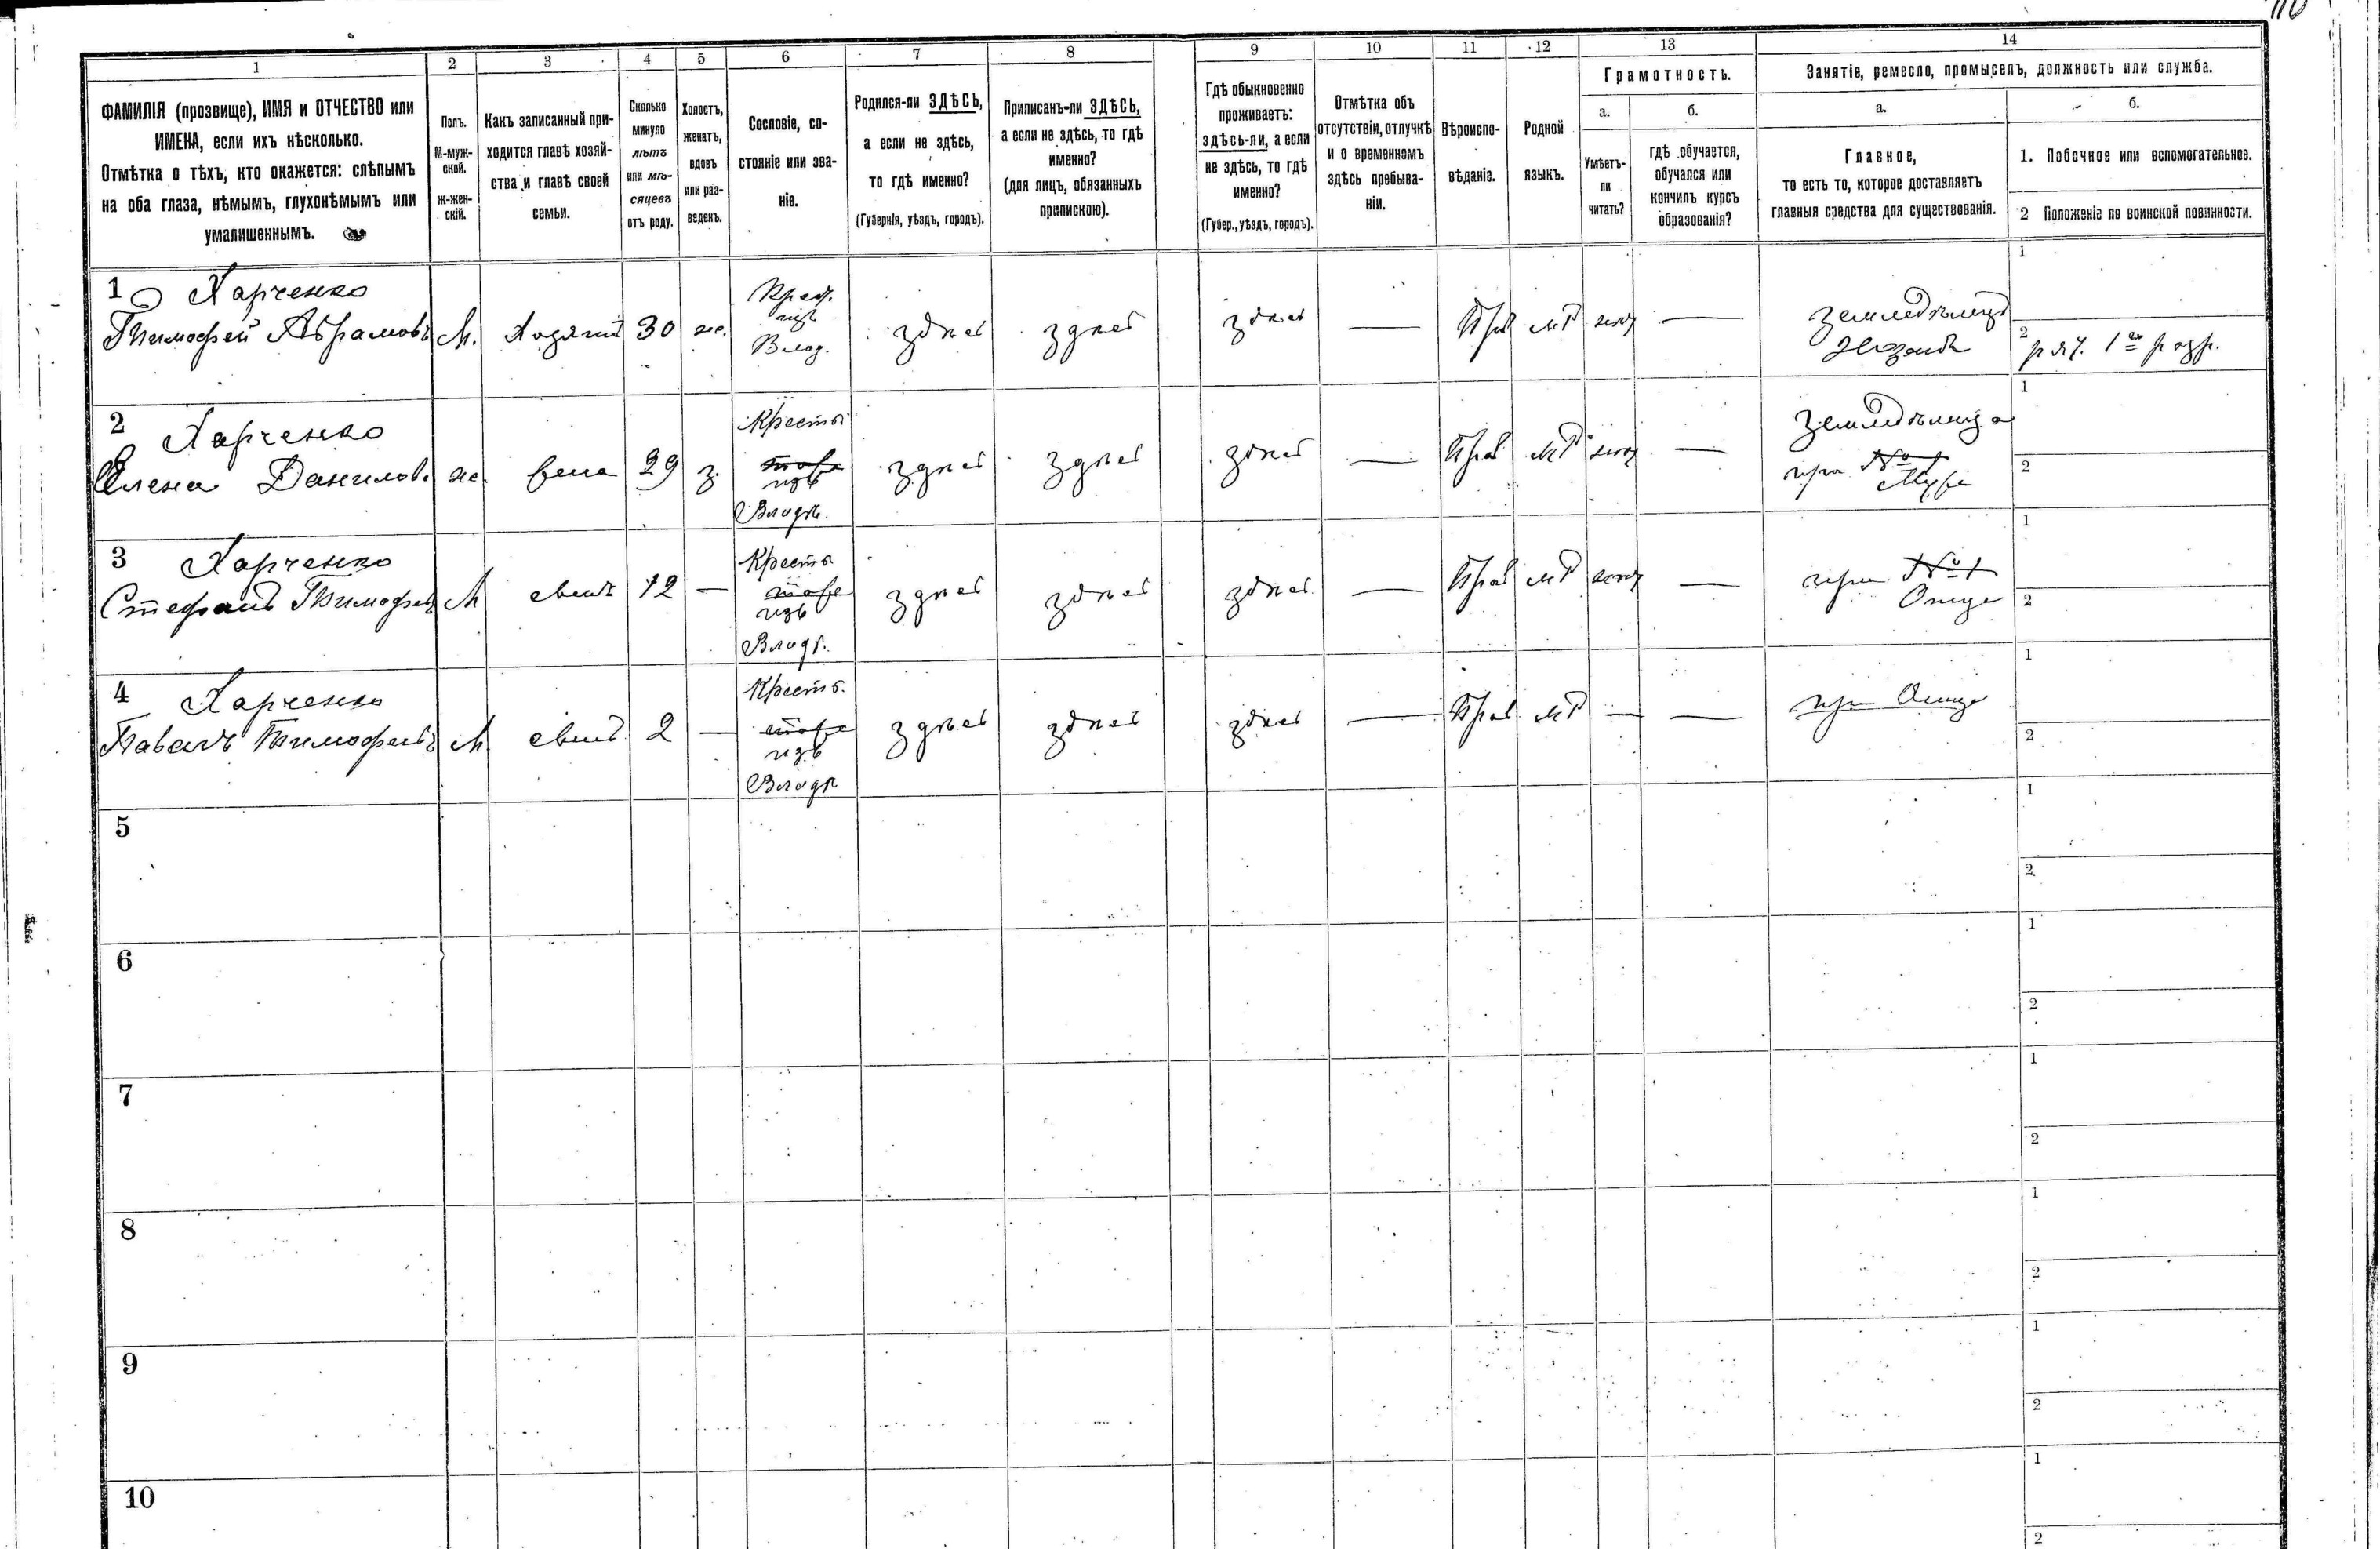 110
1
2
3
4
5
6
7
8
9
10
11
12
13
14
ФАМИЛІЯ (прозвище), ИМЯ и ОТЧЕСТВО или
ИМЕНА, если ихъ нѣсколько.
Отмѣтка о тѣхъ, кто окажется: слѣпымъ
на оба глаза, нѣмымъ, глухонѣмымъ или
умалишеннымъ.
Полъ.
М-муж-
ской.
ж-жен-
скій.
Какъ записанный при-
ходится главѣ хозяй-
ства и главѣ своей
семьи.
Сколько
минуло
лѣтъ
или мѣ-
сяцевъ
отъ роду.
Холостъ,
женатъ,
вдовъ
или раз-
веденъ.
Сословіе, со-
стояніе или зва-
ніе.
Родился-ли ЗДѢСЬ,
а если не здѣсь,
то гдѣ именно?
(Губернія, уѣздъ, городъ).
Приписанъ-ли ЗДѢСЬ,
а если не здѣсь, то гдѣ
именно?
(для лицъ, обязанныхъ
припискою).
Гдѣ обыкновенно
проживаетъ:
здѣсь-ли, а если
не здѣсь, то гдѣ
именно?
(Губер., уѣздъ, городъ).
Отмѣтка объ
отсутствіи, отлучкѣ
и о временномъ
здѣсь пребыва-
ніи.
Вѣроиспо-
вѣданіе.
Родной
языкъ.
Грамотность.
а.
Умѣетъ-
ли
читать?
б.
гдѣ обучается,
обучался или
кончилъ курсъ
образованія?
Занятіе, ремесло, промыселъ, должность или служба.
а.
Главное,
то есть то, которое доставляетъ
главныя средства для существованія.
б.
1. Побочное или вспомогательное.
2 Положеніе по воинской повинности.
1 Харченко
Тимофей Абрамовъ М. Хозяинъ 30 ж. Крест. изъ Влад. здѣсь здѣсь здѣсь — Прав МР — землѣделецъ
1
2
2 Харченко
Елена Данилов. ж. жена 29 з. Кресть изъ Владѣ. здѣсь здѣсь здѣсь — Прав МР — землѣделица при Мужѣ
1
2
3 Харченко
Стефанъ Тимофеев М сынъ 12 — Кресть изъ Влад. здѣсь здѣсь здѣсь — Прав МР — при Отце
1
2
4 Харченко
Павелъ Тимофеевъ М сынъ 2 — Кресть. изъ Влад здѣсь здѣсь здѣсь — Прав МР — — при Отце
1
2
5
1
2
6
1
2
7
1
2
8
1
2
9
1
2
10
1
2